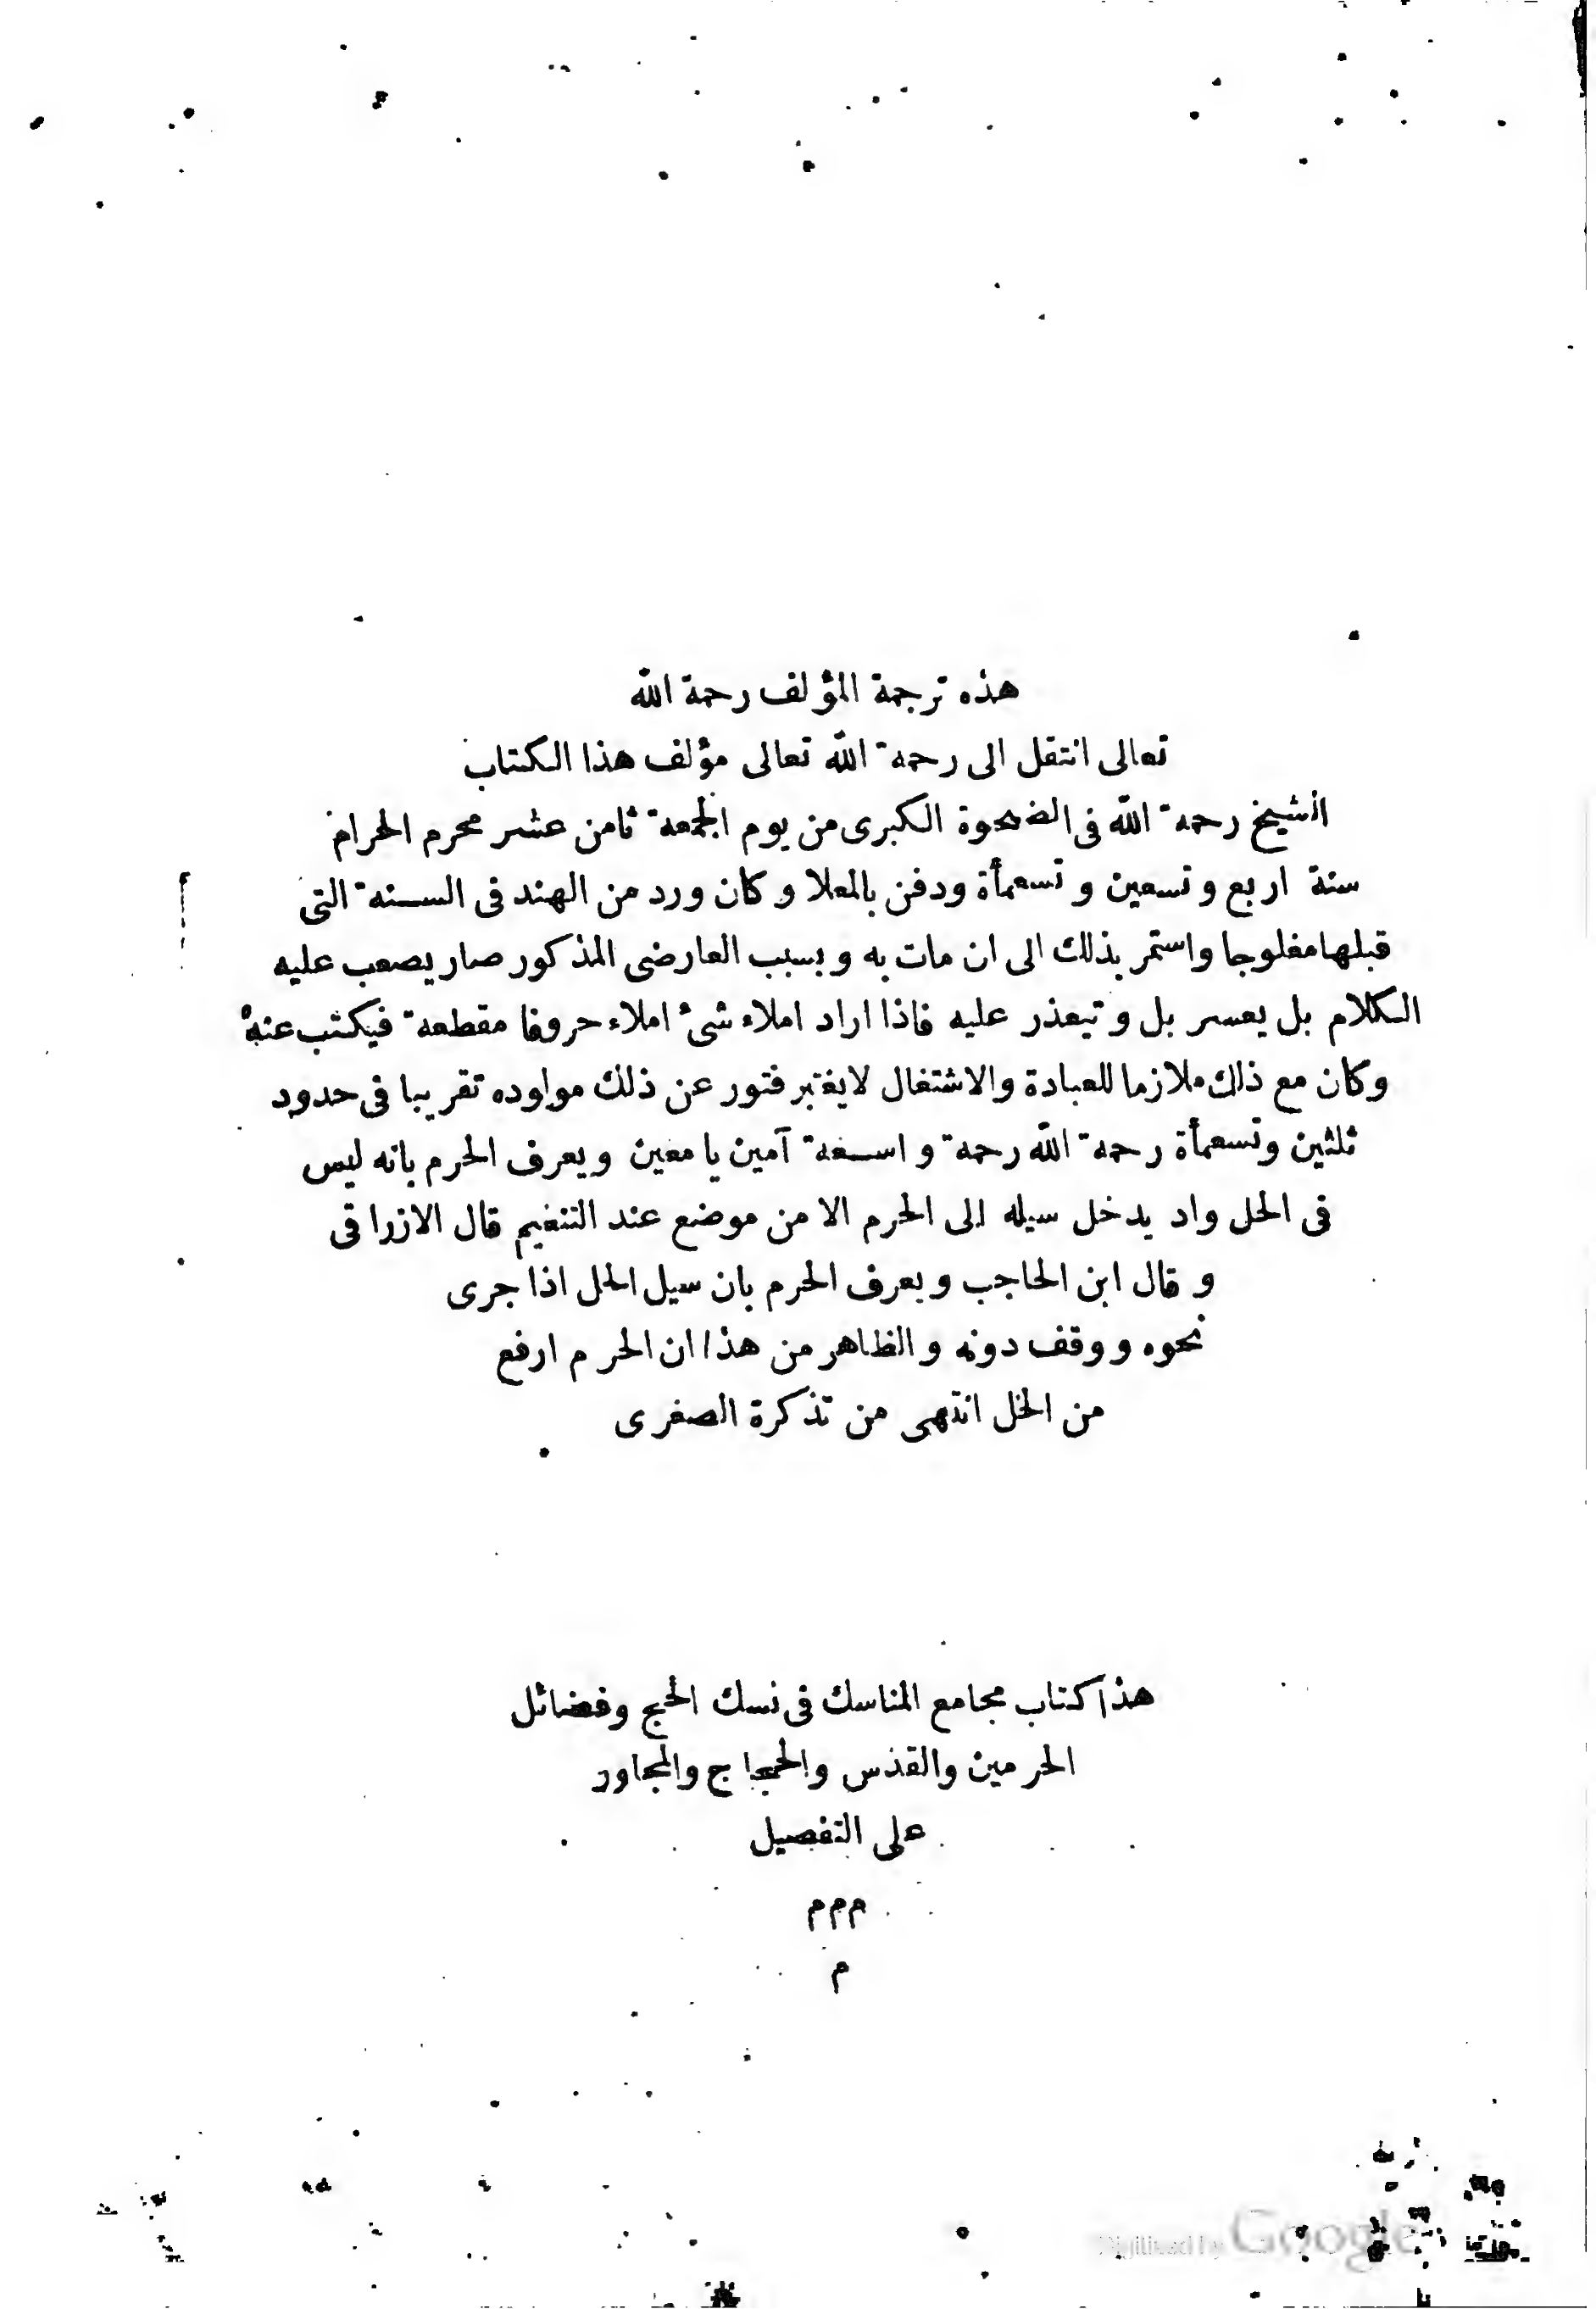 هذه ترجمة المؤلف رحمة الله
تعالى انتقل الى رحمة الله تعالى مؤلف هذا الكتاب
الشيخ رحمة الله فى الضحوة الكبرى من يوم الجمعة ثامن عشر محرم الحرام
سنة اربع وتسعين وتسعمأة ودفن بالمعلا وكان ورد من الهند فى السنة التى
قبلها مفلوجا واستمر بذلك الى ان مات به وبسبب العارضى المذكور صار يصعب عليه
الكلام بل يعسر بل وتيعذر عليه فاذا اراد املاء شئ املاء حروفا مقطعة فيكتب عنه
وكان مع ذلك ملازما للعبادة والاشتغال لايفتبر فتور عن ذلك مولوده تقريبا فى حدود
ثلثين وتسعمأة رحمة الله رحمة واسعة آمين يا معين ويعرف الحرم بانه ليس
فى الحل واد يدخل سيله الى الحرم الا من موضع عند التنعيم قال الازراقى
وقال ابن الحاجب وبعرف الحرم بان سيل الحل اذا جرى
نحوه ووقف دونه والظاهر من هذا ان الحرم ارفع
من الحل انتهى من تذكرة الصغرى
هذا كتاب مجامع المناسك فى نسك الحج وفضائل
الحرمين والقدس والحجاج والمجاور
على التفصيل
م م م
م
Digitized by Google